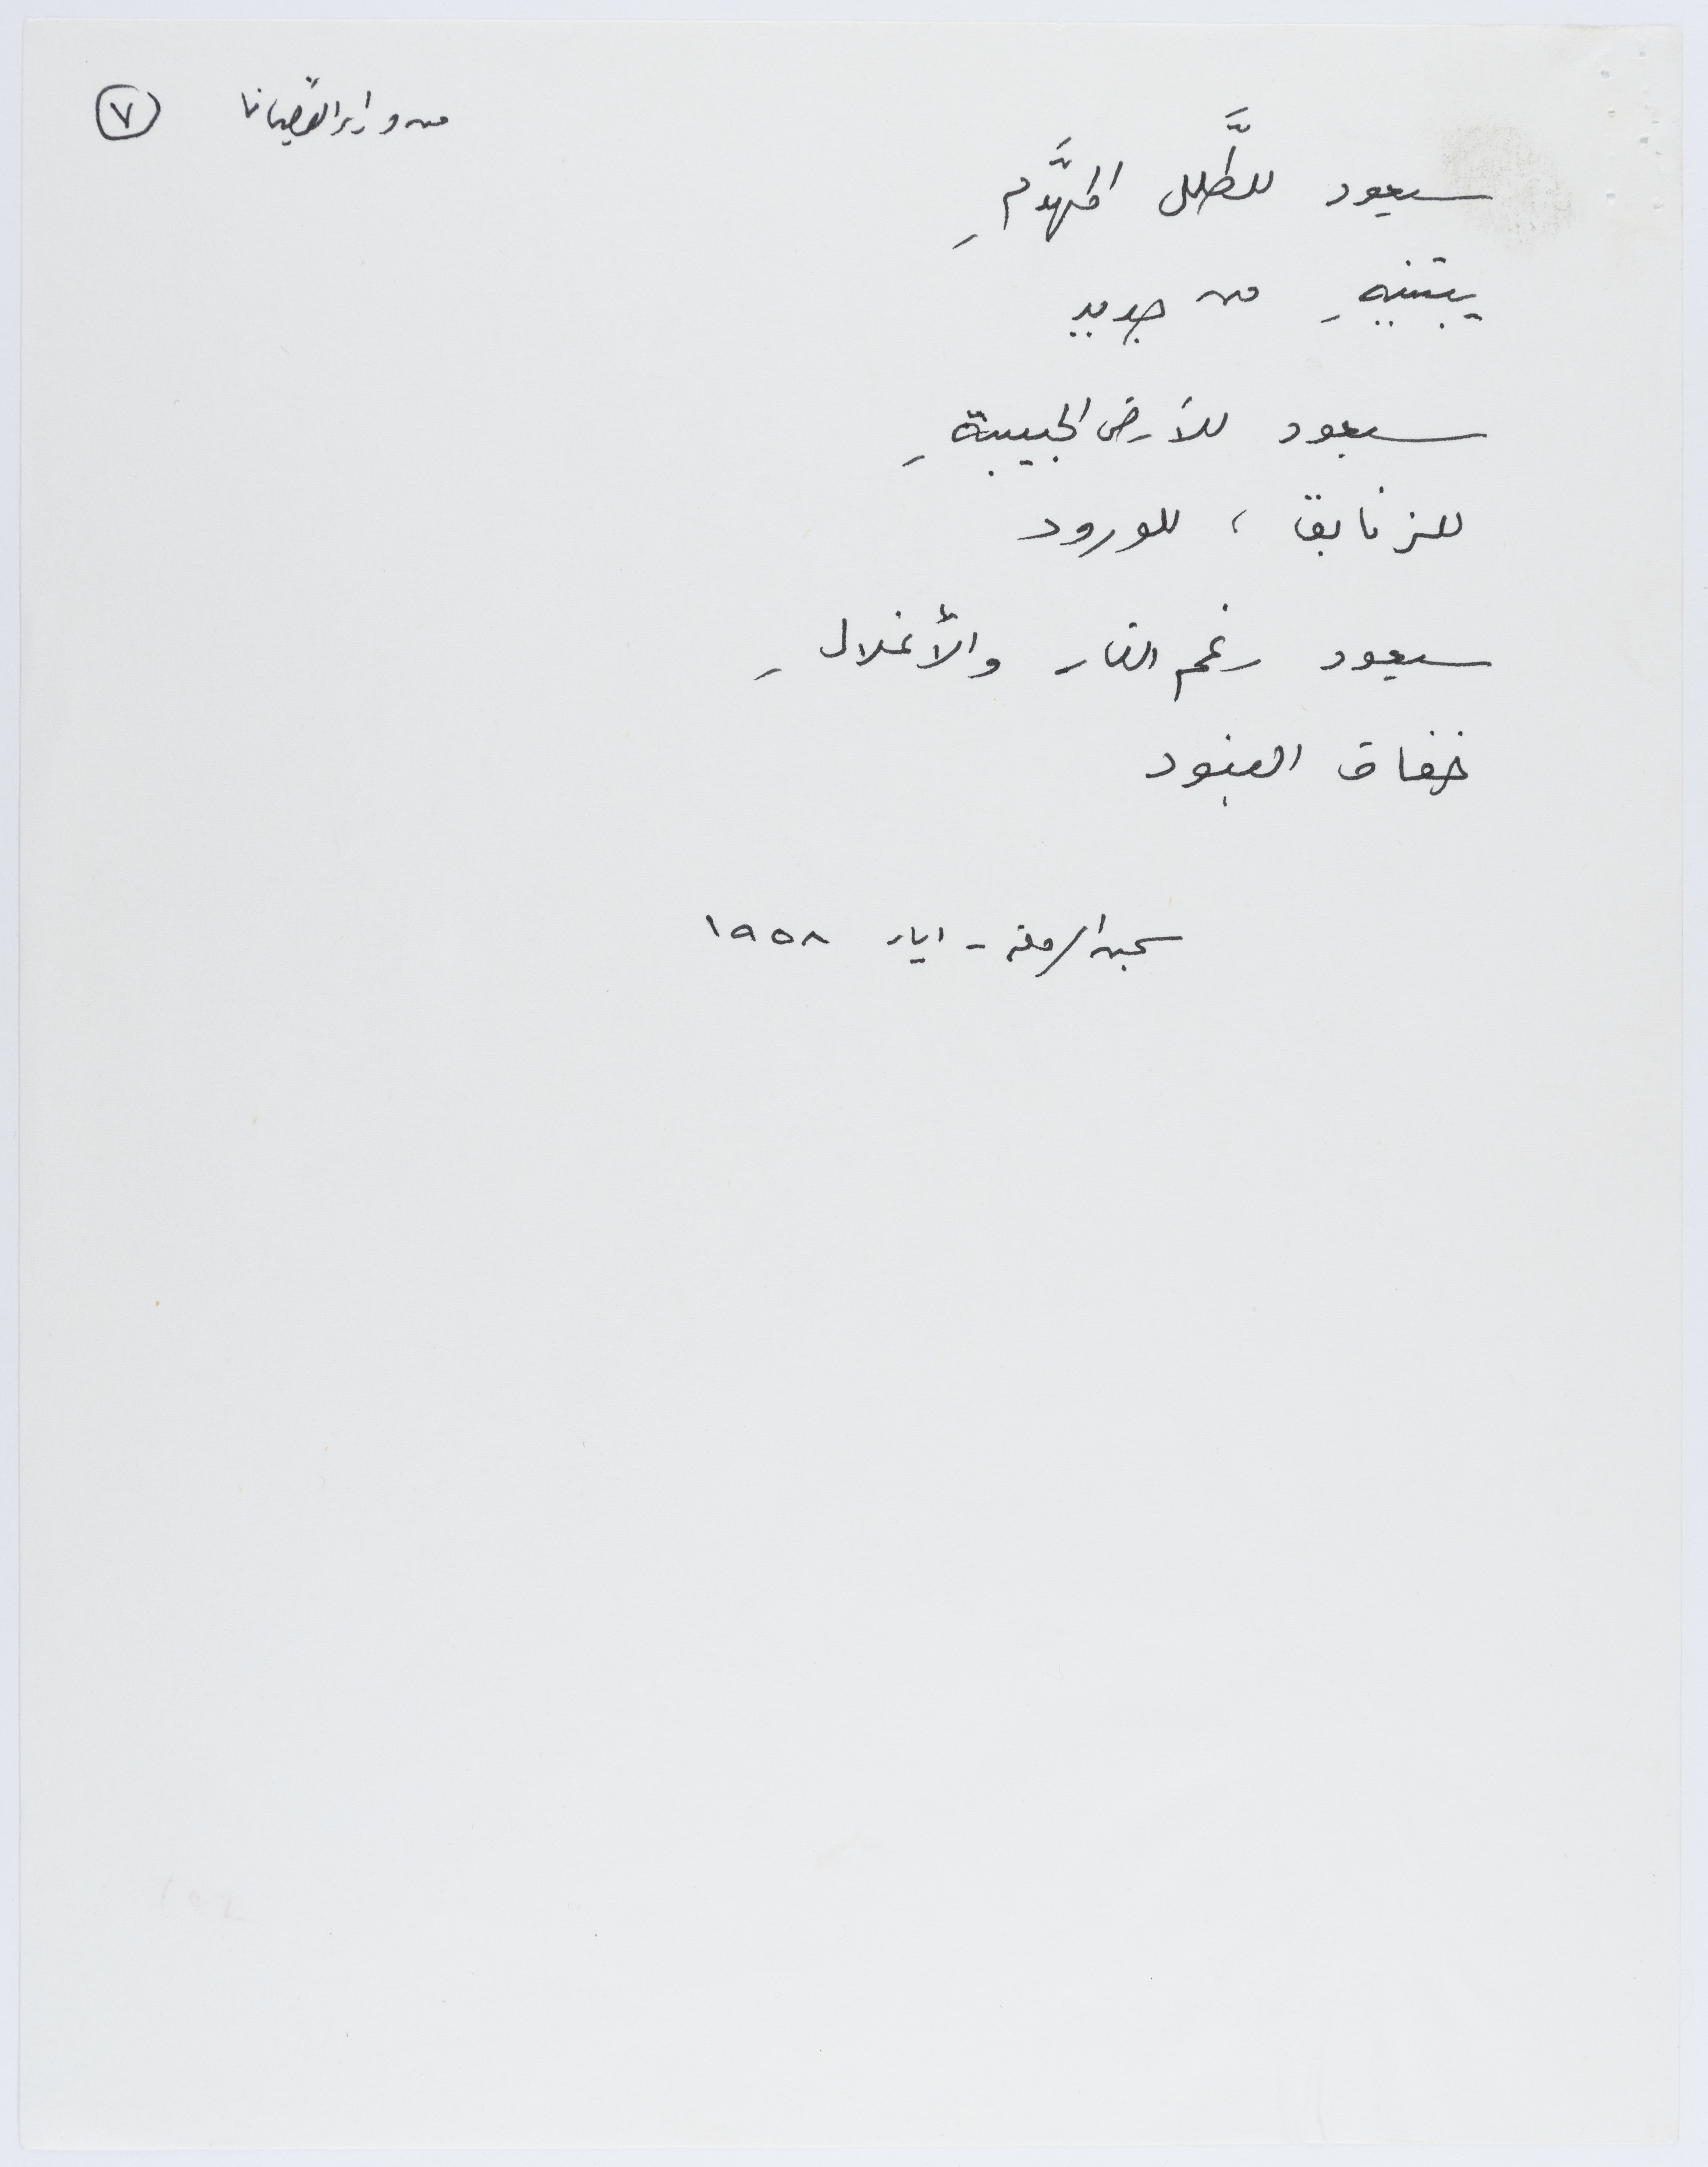 من وراء القضبان ⑦
سيعود للطَّلل المهدَّمِ
يبتنيهِ من جديد
سيعود للأرض الحبيبةِ
للزنابق ، للورود
سيعود رغم النار والأغلالِ
خفاق البنود
سجن الرملة - ايار ١٩٥٨